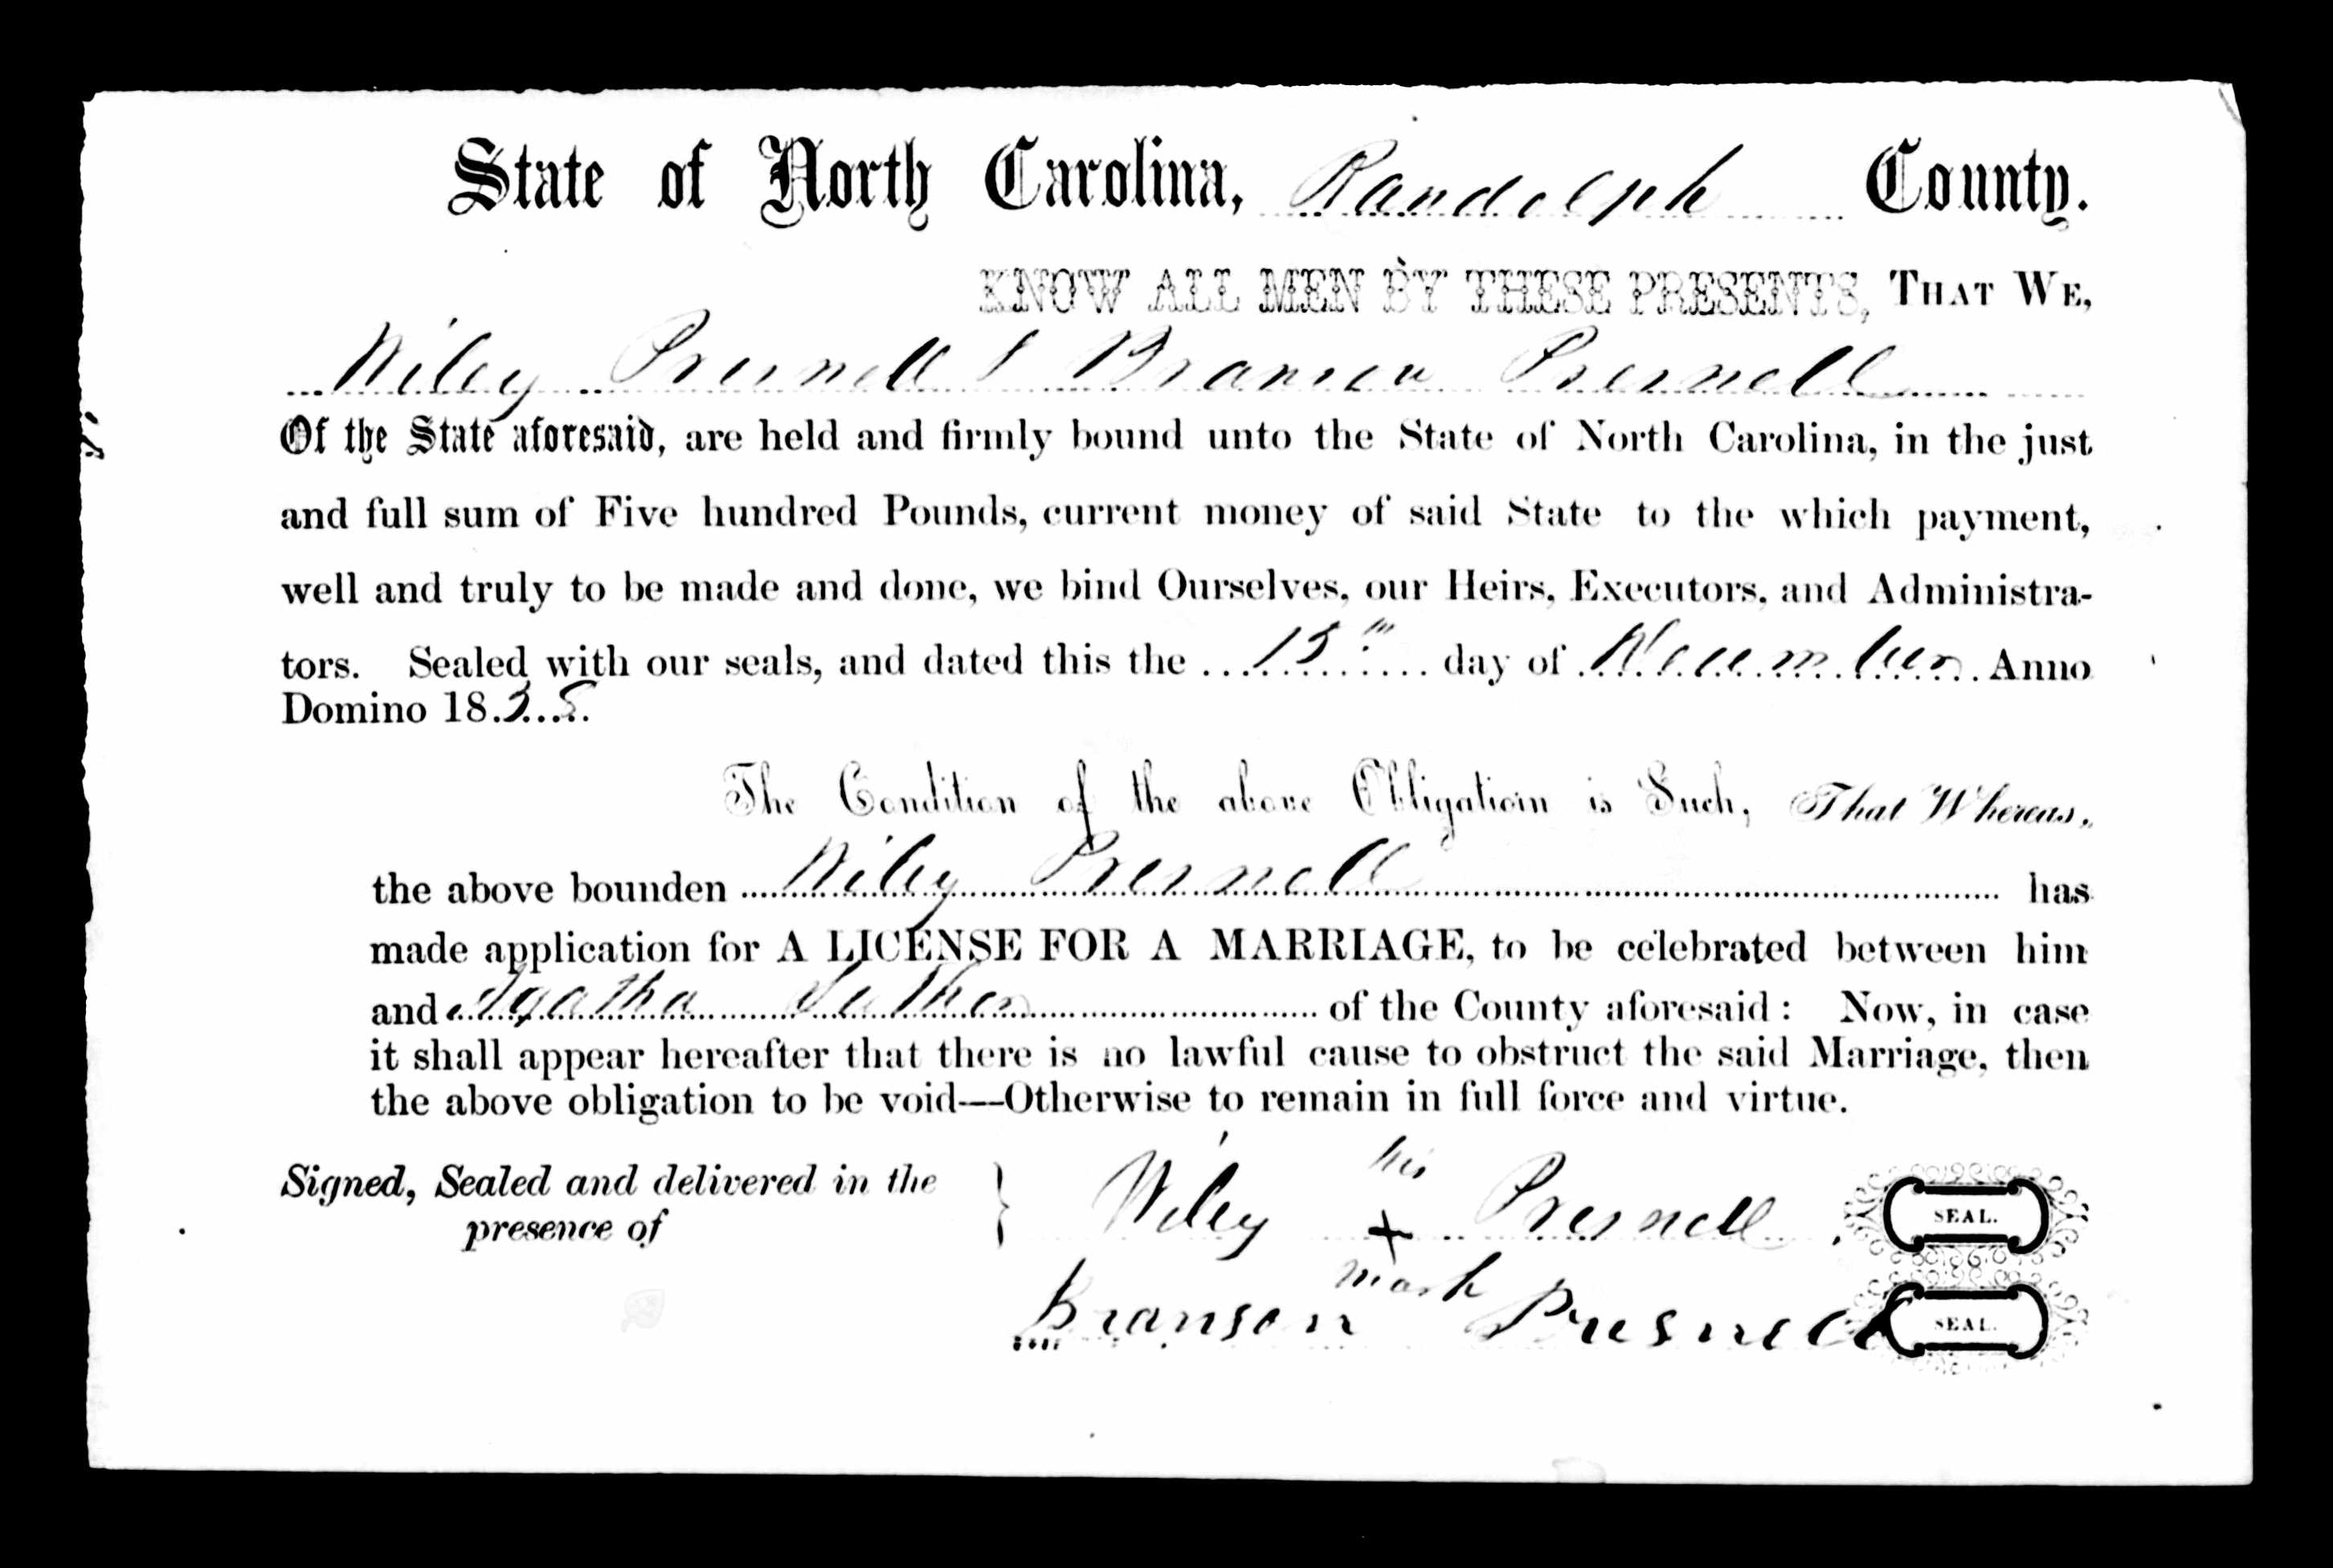 State of North Carolina, Randolph County.
KNOW ALL MEN BY THESE PRESENTS, THAT WE,
Wiley Presnell & Branson Presnell
Of the State aforesaid, are held and firmly bound unto the State of North Carolina, in the just
and full sum of Five hundred Pounds, current money of said State to the which payment,
well and truly to be made and done, we bind Ourselves, our Heirs, Executors, and Administra-
tors. Sealed with our seals, and dated this the 15th day of Anno
Domino 1858.
The Condition of the above Obligatioin is Such, That Whereas,
the above bounden Wiley Presnell has
made application for A LICENSE FOR A MARRIAGE, to be celebrated between him
and Agatha Luther of the County aforesaid: Now, in case
it shall appear hereafter that there is no lawful cause to obstruct the said Marriage, then
the above obligation to be void—Otherwise to remain in full force and virtue.
Signed, Sealed and delivered in the
presence of
his
Wiley x Presnell SEAL.
mark
Branson Presnell SEAL.